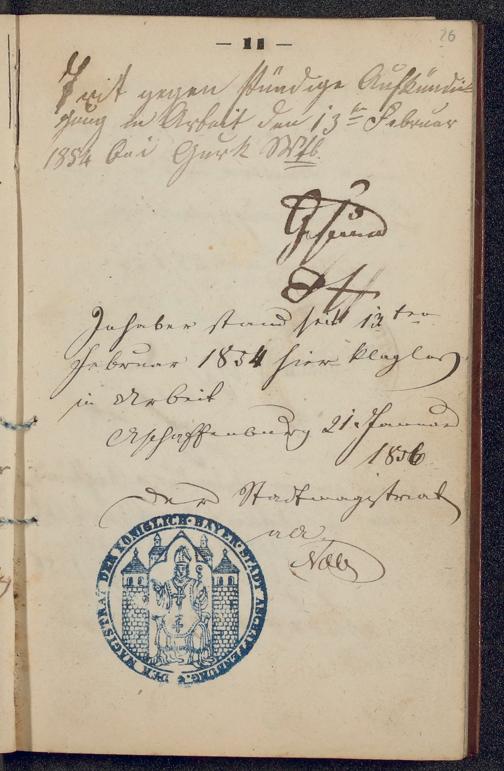 26
— 11 —
Tritt gegen stündige Aufkündi-
gung in Arbeit den 13ten Februar
1854 bei Gurk Wtb.
Gesehen
Inhaber stand seit 13ten
Februar 1854 hier klaglos
in Arbeit
Aschaffenburg 21. Januar
1856
Der Stadtmagistrat
DER MAGISTRAT DER KÖNIGLICH · BAYER · STADT ASCHAFFENBURG